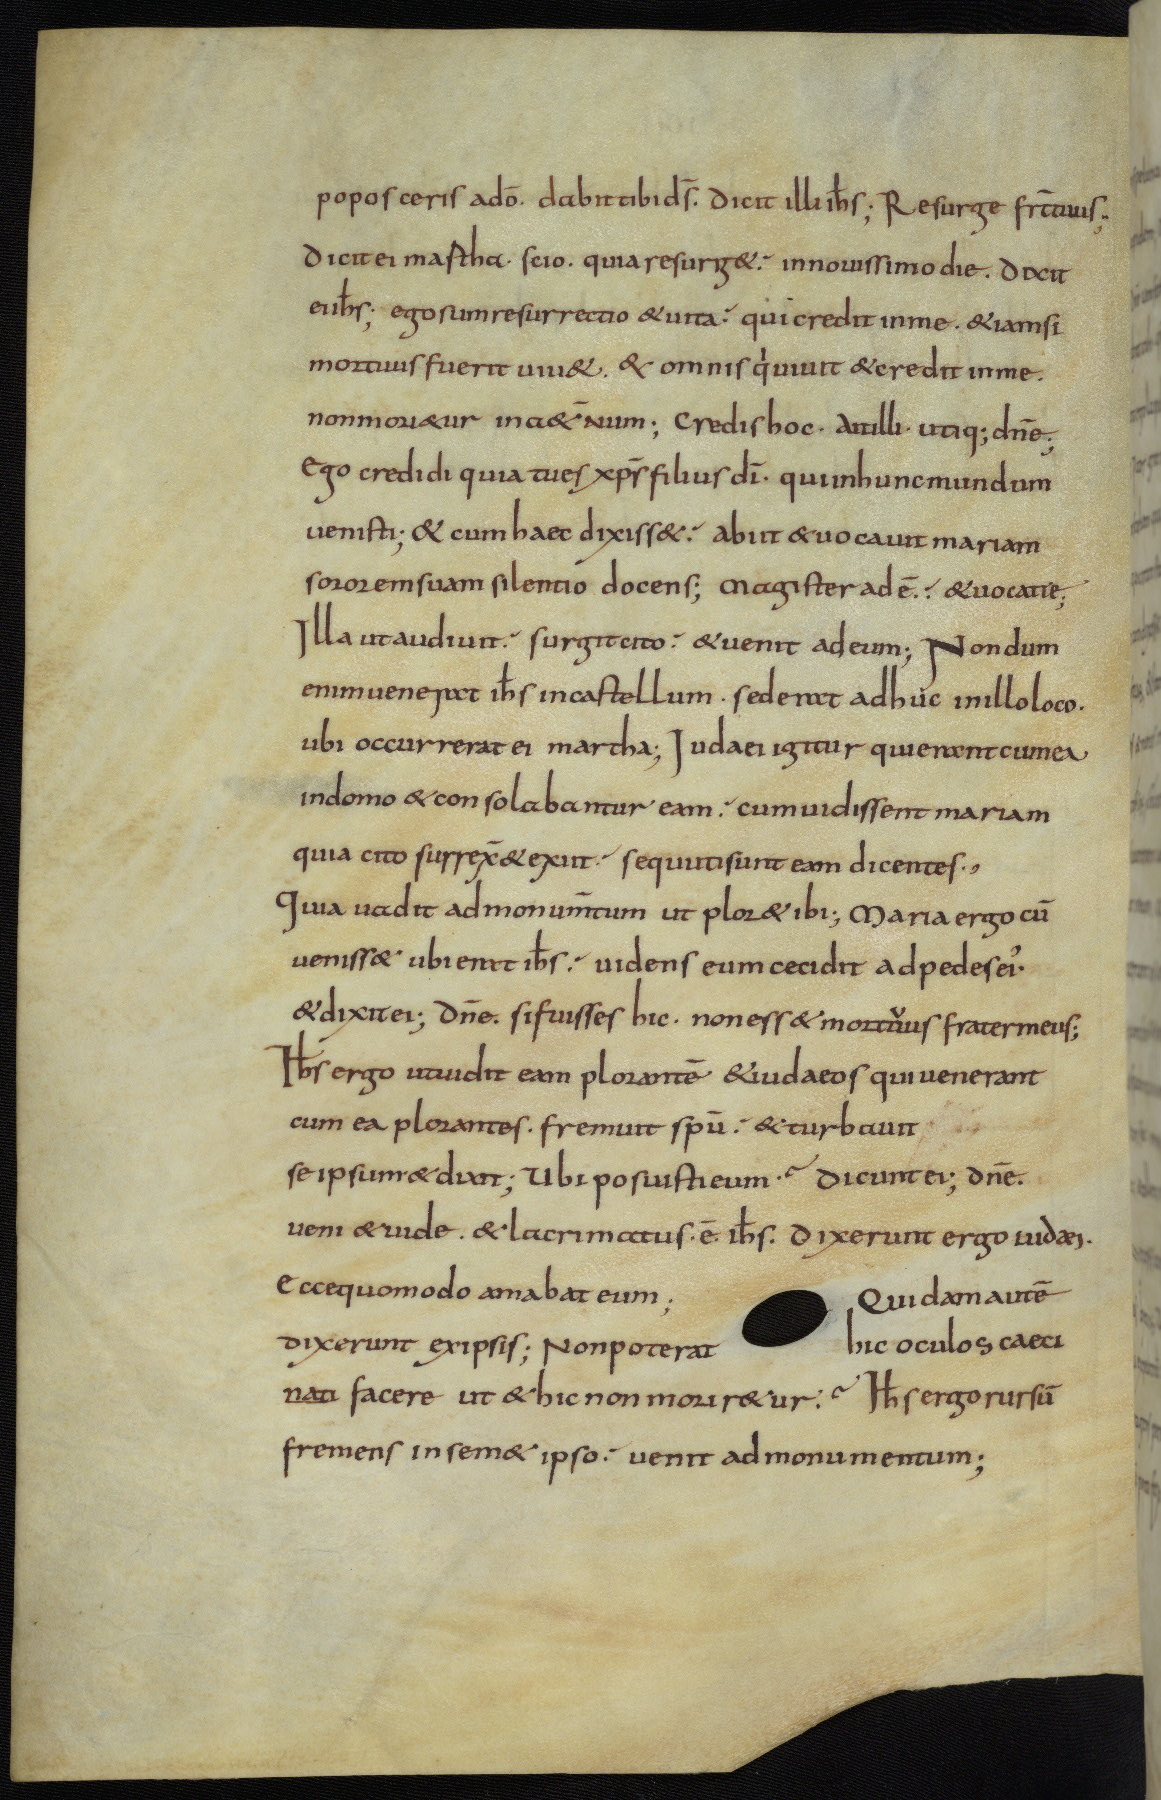 poposceris ado̅. dabit tibi ds̅. Dicit illi ihs̅; Resurg& fr̅ tuus;
Dicit ei martha. scio. quia resurg& in novissimo die. Dixit
ei ihs̅; ego sum resurrectio & vita. qui credit in me. & iamsi
mortuus fuerit viv&. & omnis qui vivit & credit in me.
non mori&ur in a&̅num; Credis hoc. Ait illi. utiq; dne̅;
Ego credidi quia tu es xps̅ filius di̅. qui in hunc mundum
venisti; & cum haec dixiss&. abiit & vocavit mariam
sororem suam silentio docens; Magister ade̅. & vocat te;
Illa ut audivit. surgit cito. & venit ad eum; Nondum
enim venerat ihs̅ in castellum. sed erat adhuc in illo loco.
ubi occurrerat ei martha; Iudaei igitur qui erant cum ea
in domo & consolabantur eam. cum vidissent mariam
quia cito surrex̅ & exiit. secuti sunt eam dicentes.
Quia vadit ad monum̅tum ut plor& ibi; Maria ergo cu̅
veniss& ubi erat ihs̅. videns eum cecidit ad pedes ei'.
& dixit ei; Dne̅. si fuisses hic. non ess& mortuus frater meus;
Ihs̅ ergo ut vidit eam plorante̅ & iudaeos qui venerant
cum ea plorantes. fremuit spu̅. & turbavit
se ipsum & dixit; Ubi posuisti eum. Dicunt ei; Dne̅.
veni & vide. & lacrimatus. e̅. ihs̅. Dixerunt ergo iudaei.
Ecce quomodo amabat eum; Quidam aute̅
dixerunt ex ipsis; Non poterat hic oculos caeci
nati facere ut & hic non morir&ur. Ihs̅ ergo rursu̅
fremens in sem& ipso. venit ad monumentum;